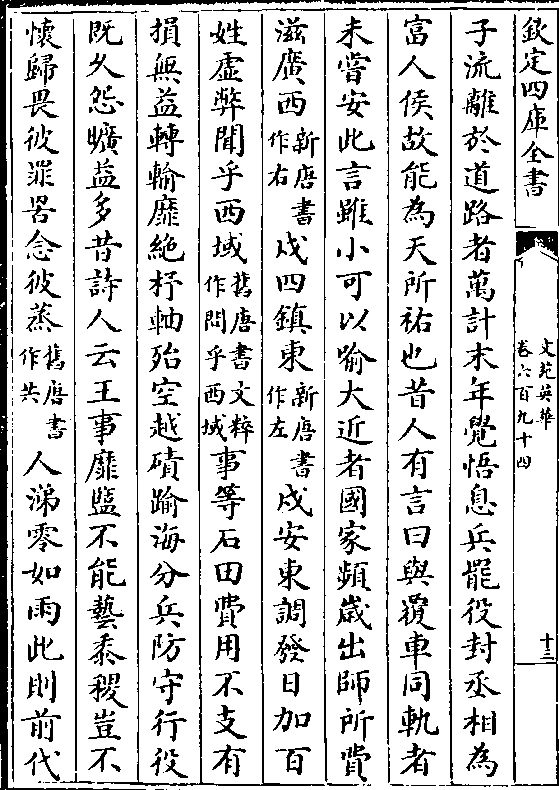 欽定四庫全書
文苑英華
卷六百九十四
十三
子流離於道路者萬計末年覺悟息兵罷役封丞相為
富人侯故能為天所祐也昔人有言曰與覆車同軌者
未嘗安此言雖小可以喻大近者國家頻嵗出師所費
滋廣西新唐書作右戍四鎮東新唐書作左戍安東調發日加百
姓虛弊聞乎西域舊唐書文粹作問乎西域事等石田費用不支有
損無益轉輸靡絶杼軸殆空越磧踰海分兵防守行役
既久怨曠益多昔詩人云王事靡盬不能藝黍稷豈不
懷歸畏彼罪罟念彼蒸舊唐書作共人涕零如雨此則前代